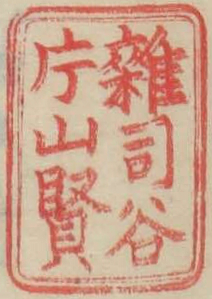 雜司谷
片山賢